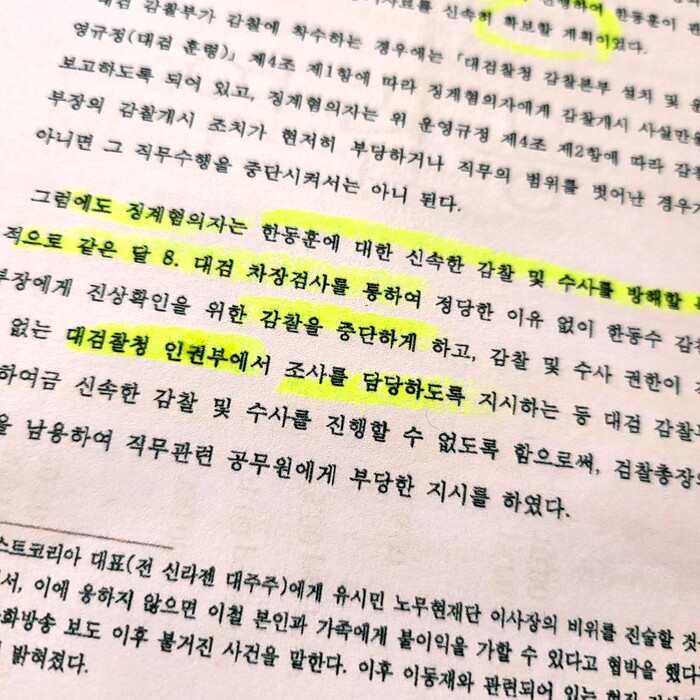 대검 감찰부가 감찰에 착수하는 경우에는 「대검찰청 감찰본부 설치 및
신속히 확보할 계획이었다.
영규정(대검 훈령)」 제4조 제1항에 따라 징계혐의자에게 감찰개시 사실만을
보고하도록 되어 있고, 징계혐의자는 위 운영규정 제4조 제2항에 따라
부장의 감찰개시 조치가 현저히 부당하거나 직무의 범위를 벗어난
아니면 그 직무수행을 중단시켜서는 아니 된다.
그럼에도 징계혐의자는 한동훈에 대한 신속한 감찰 및 수사를 방해할
적으로 같은 달 8. 대검 차장검사를 통하여 정당한 이유 없이 한동수
부장에게 진상확인을 위한 감찰을 중단하게 하고, 감찰 및 수사 권한이
없는 대검찰청 인권부에서 조사를 담당하도록 지시하는 등 대검
하여금 신속한 감찰 및 수사를 진행할 수 없도록 함으로써,
을 남용하여 직무관련 공무원에게 부당한 지시를 하였다.
스트코리아 대표(전 신라젠 대주주)에게 유시민 노무현재단 이사장의 비위를 진술할
서, 이에 응하지 않으면 이철 본인과 가족에게 불이익을 가할 수 있다고 협박을
화방송 보도 이후 불거진 사건을 말한다. 이후 이동재와 관련되어 있는
밝혀졌다.